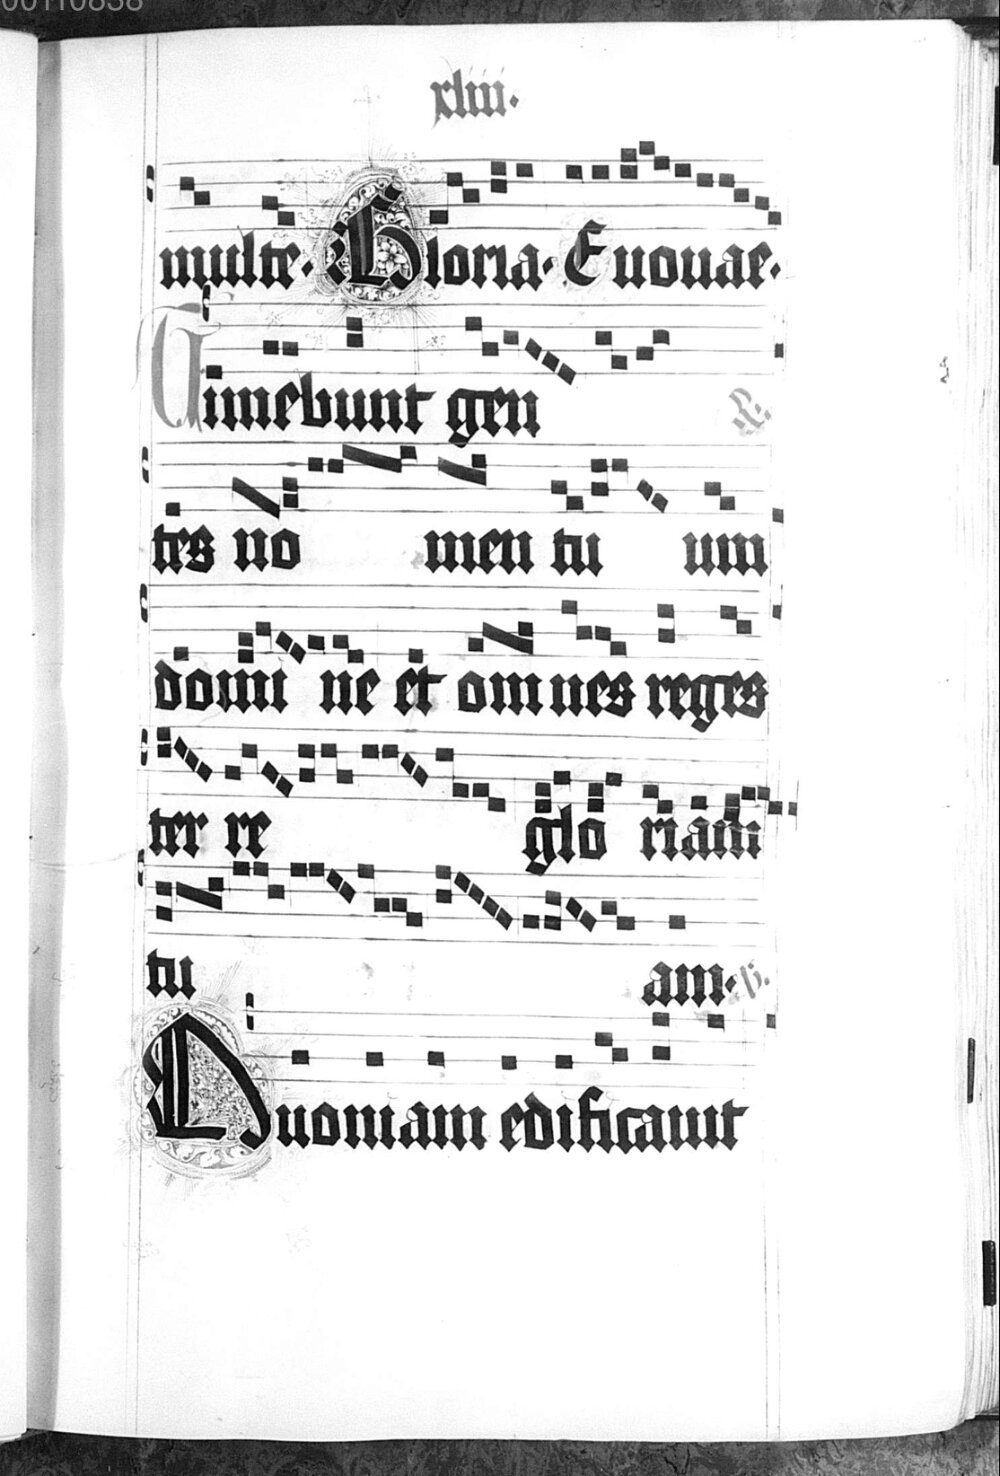 00110838
xliii.
multe. Gloria. Euouae.
Timebunt gen
tes no men tu um
domi ne et omnes reges
ter re glo riam
tu am.
Quoniam edificauit